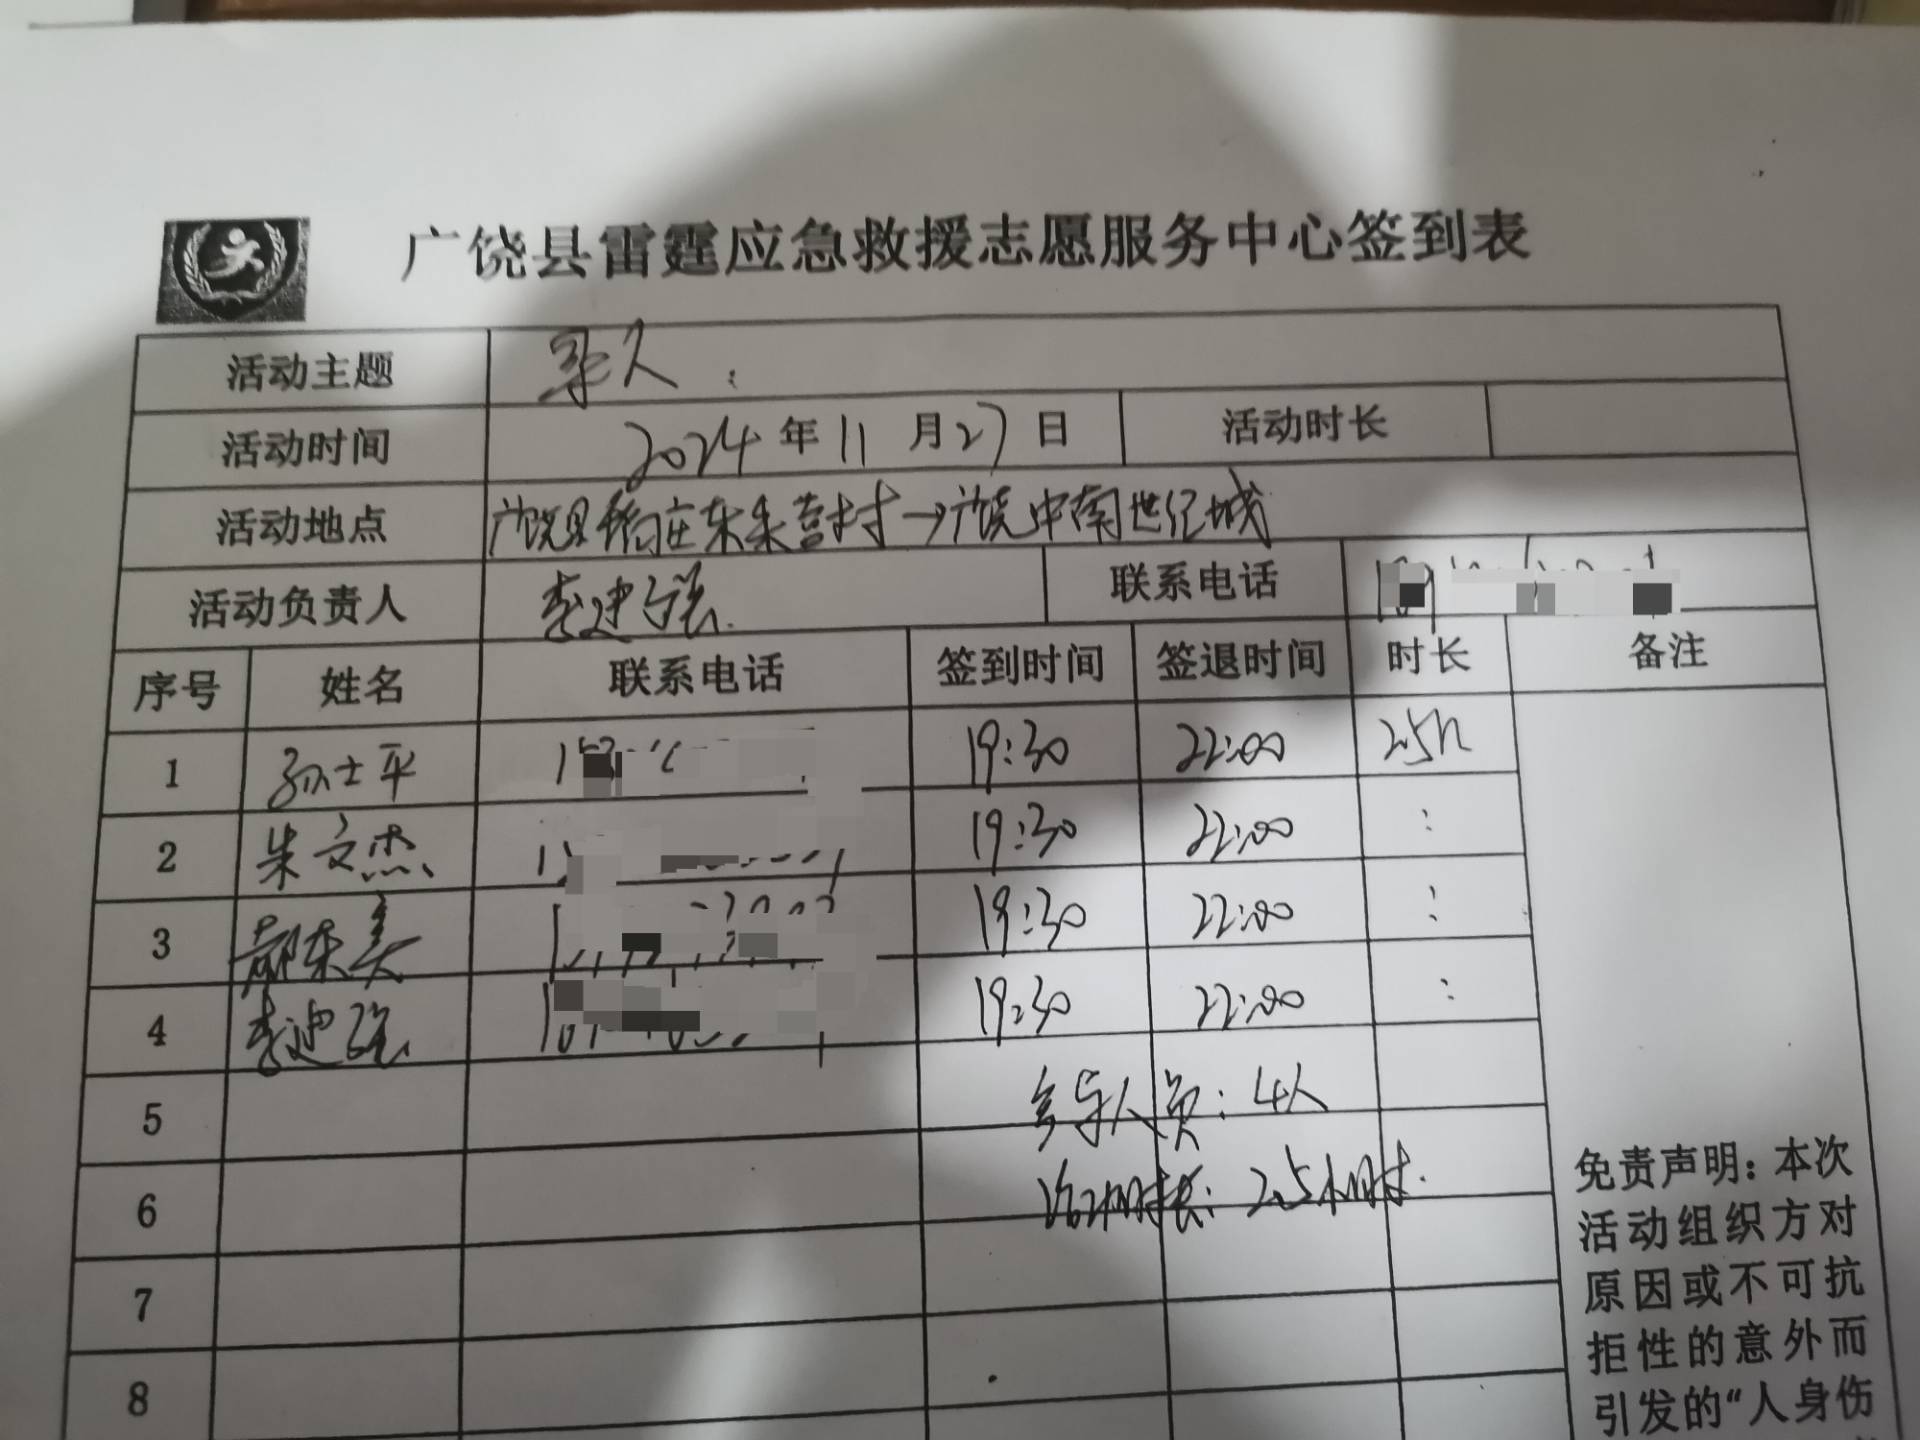 广饶县雷霆应急救援志愿服务中心签到表
活动主题 寻人
活动时间 2024年11月27日 活动时长
活动地点 广饶县 庄东朱营村→广饶中南世纪城
活动负责人 李建强 联系电话
序号 姓名 联系电话 签到时间 签退时间 时长 备注
1 孙士平 19:30 22:00 2.5h
2 朱文杰 19:30 22:00 :
3 19:30 22:00 :
4 李建强 19:30 22:00 :
5 参与人员:4人
6 活动时长:2.5小时.
7
8
免责声明:本次
活动组织方对
原因或不可抗
拒性的意外而
引发的“人身伤